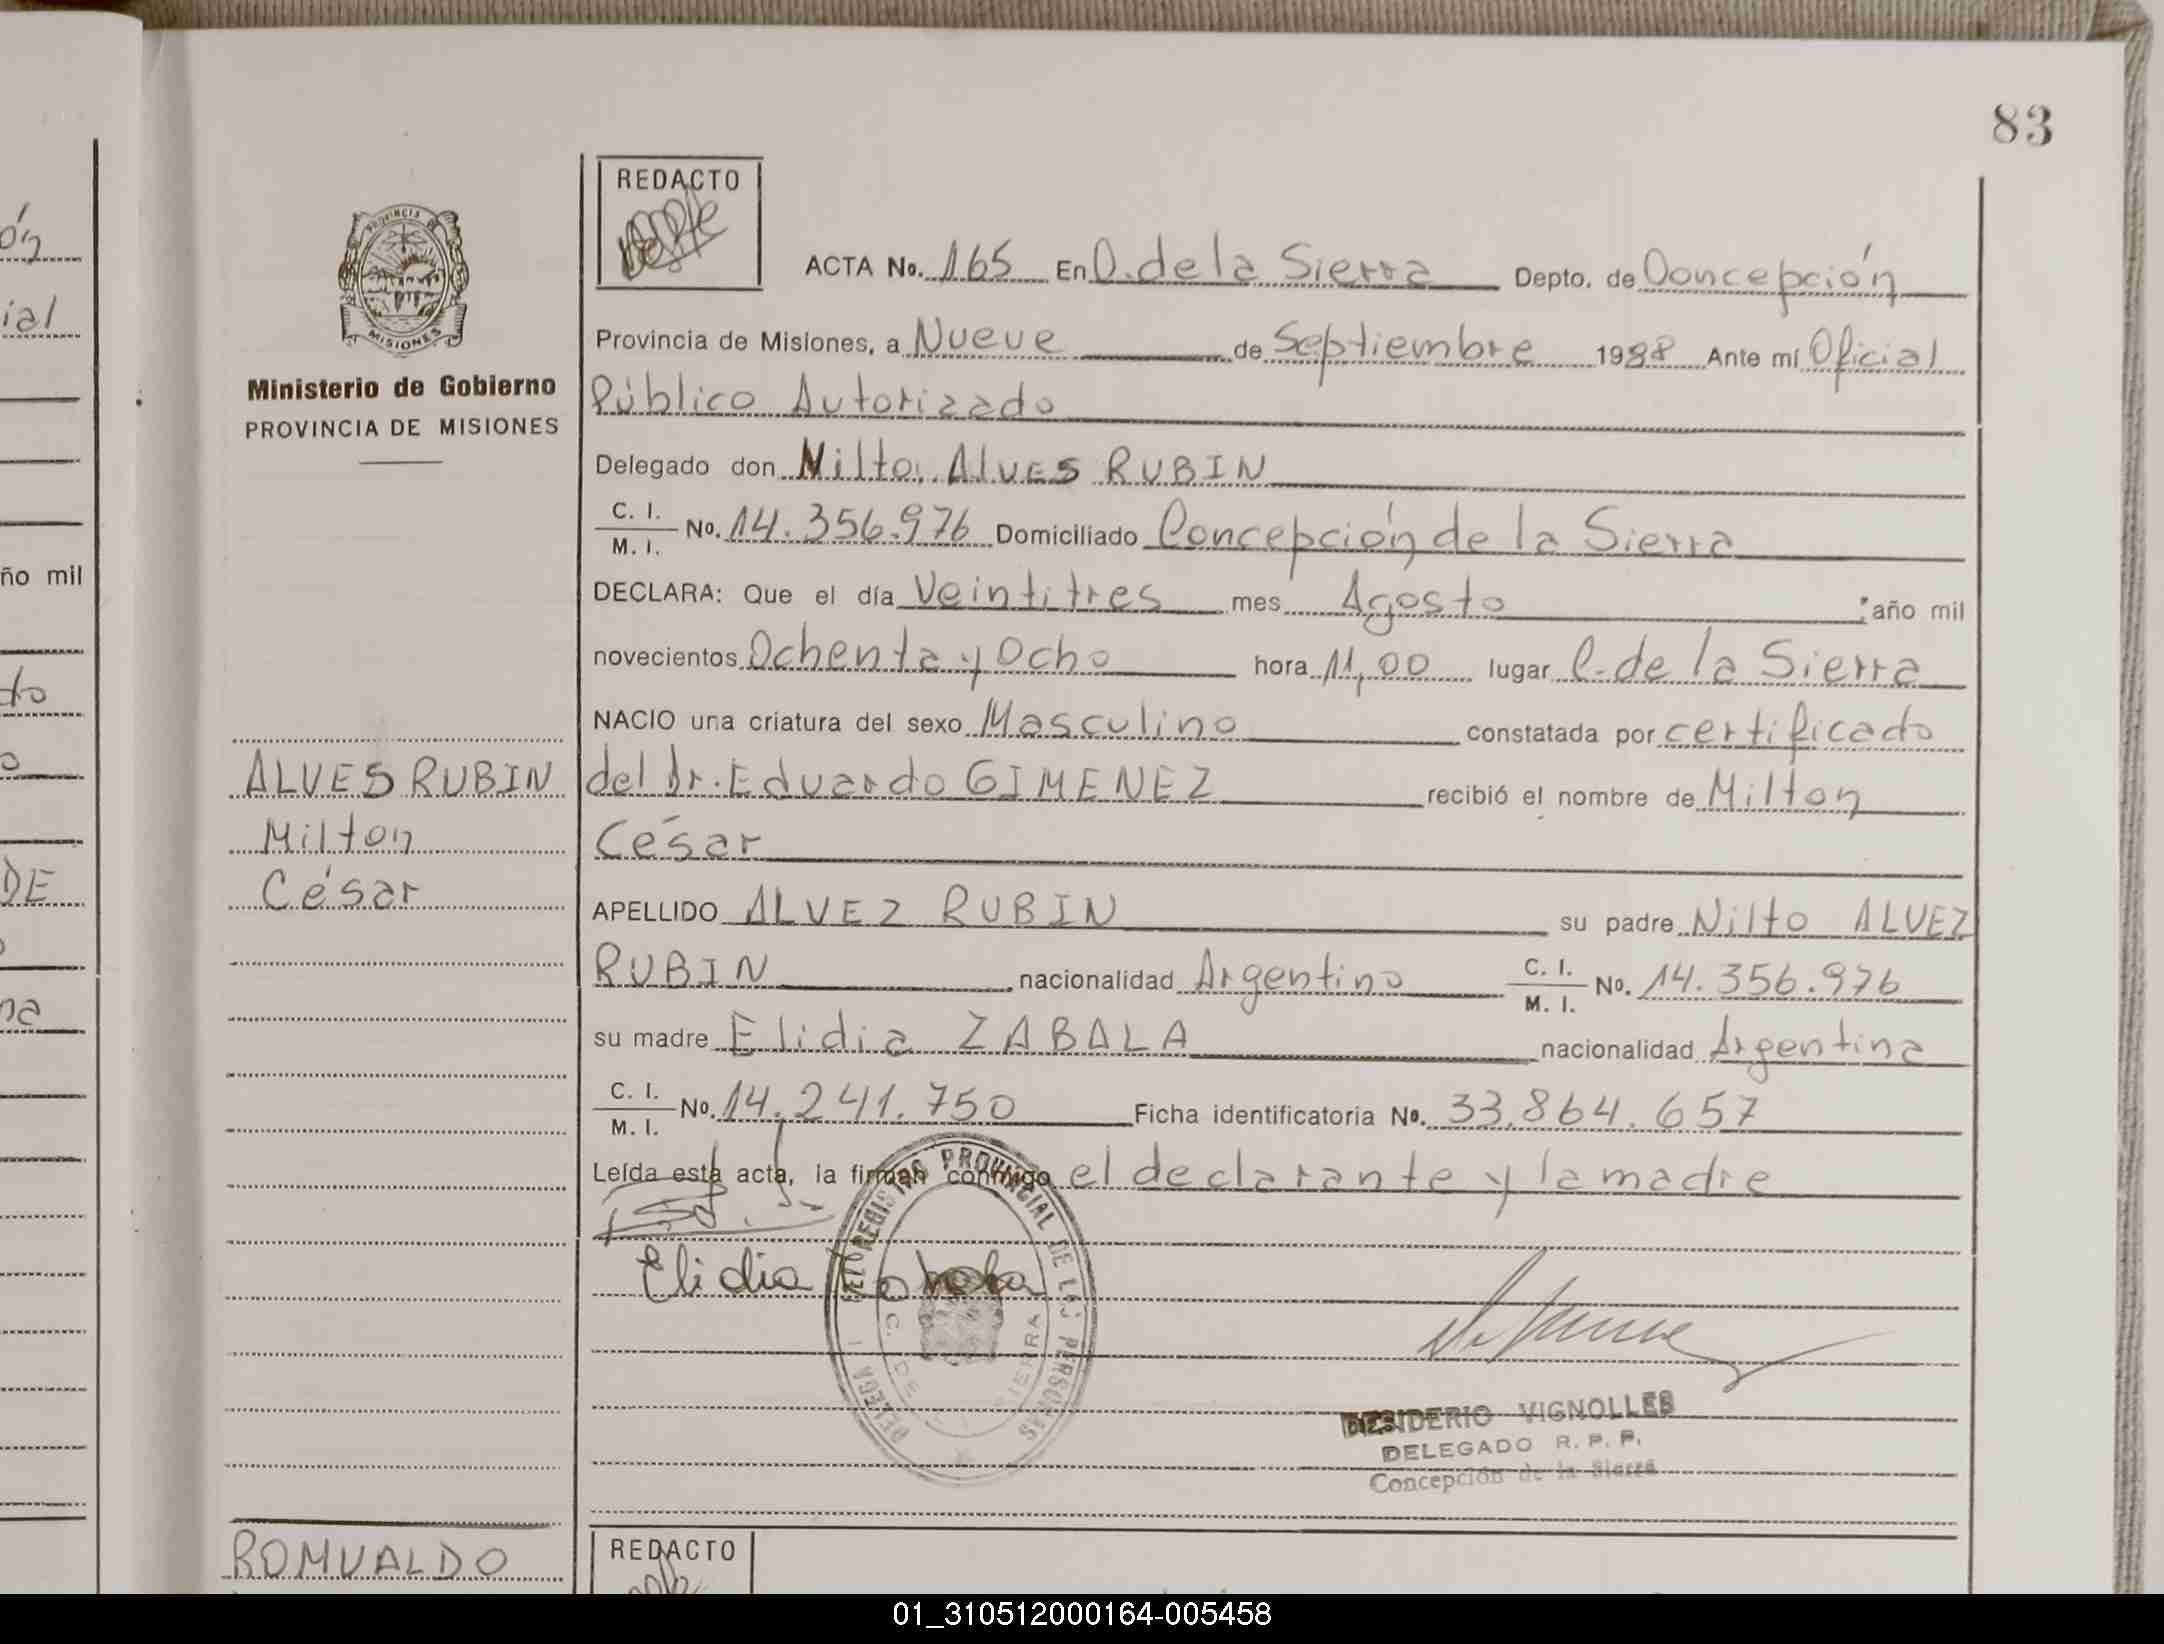 83
REDACTO
PROVINCIA DE
MISIONES
Ministerio de Gobierno
PROVINCIA DE MISIONES
ACTA No. 165 En C. de la Sierra Depto. de Concepción
Provincia de Misiones, a Nueve de Septiembre 1988 Ante mí Oficial
Público Autorizado
Delegado don Nilto ALVES RUBIN
C. I. / M. I. No. 14.356.976 Domiciliado Concepción de la Sierra
DECLARA: Que el día Veintitres mes Agosto ; año mil
novecientos Ochenta y Ocho hora 11,00 lugar C. de la Sierra
NACIO una criatura del sexo Masculino constatada por certificado
del Dr. Eduardo GIMENEZ recibió el nombre de Milton
César
APELLIDO ALVEZ RUBIN su padre Nilto ALVEZ
RUBIN nacionalidad Argentino C. I. / M. I. No. 14.356.976
su madre Elidia ZABALA nacionalidad Argentina
C. I. / M. I. No. 14.241.750 Ficha identificatoria No. 33.864.657
Leída esta acta, la firman conmigo el declarante y la madre
ALVES RUBIN
Milton
César
Elidia
REGISTRO PROVINCIAL DE LAS PERSONAS
C. DE SIERRA
DESIDERIO VIGNOLLES
DELEGADO R. P. P.
Concepción de la Sierra
ROMUALDO
REDACTO
ón
ial
ño mil
do
o
DE
na
01_310512000164-005458